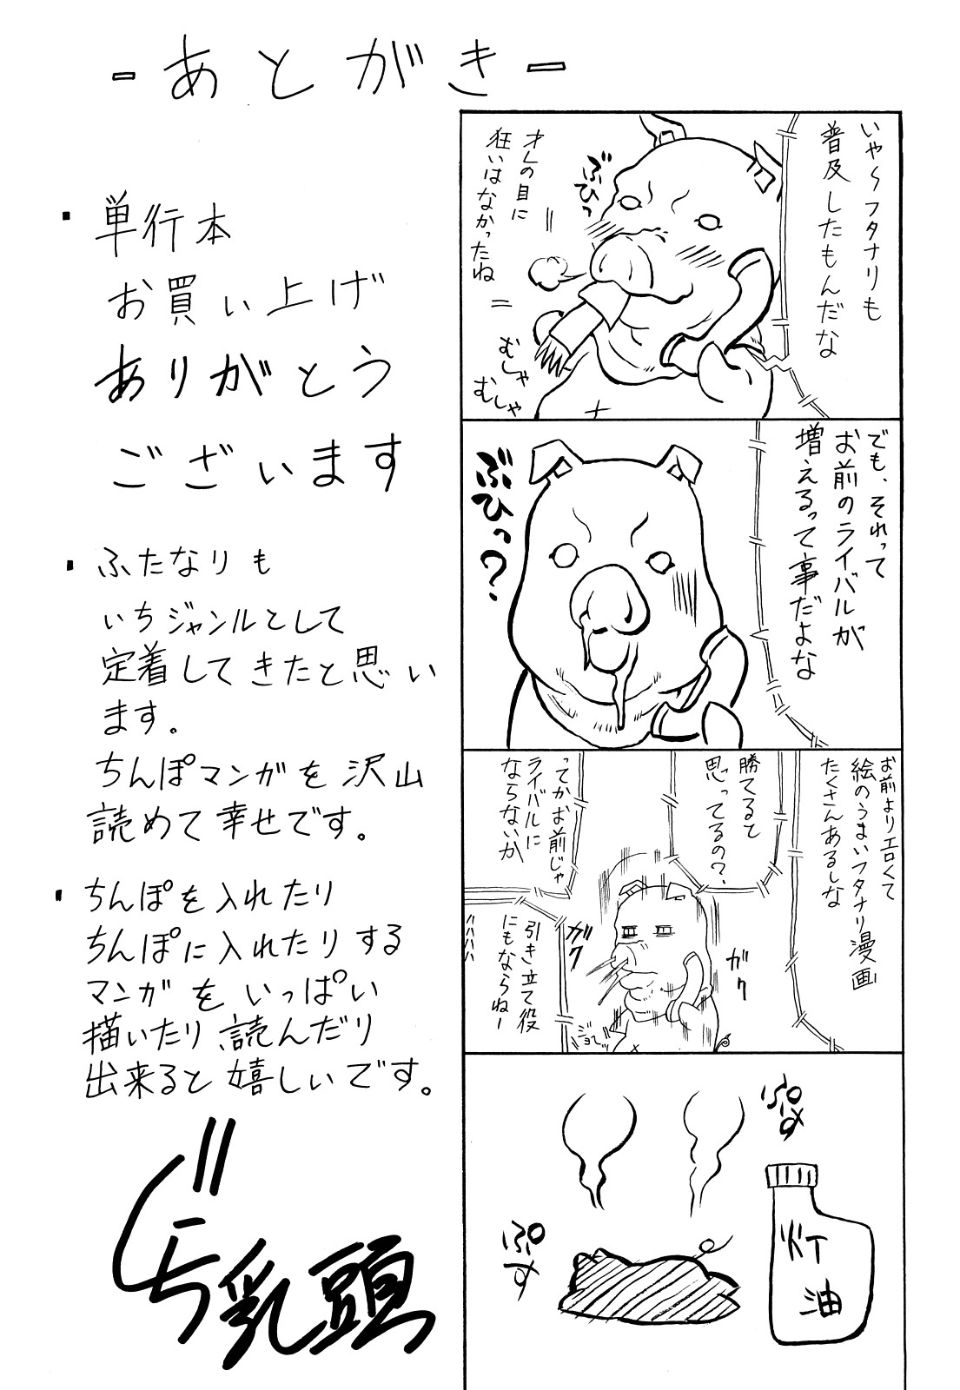 -あとがき-
・単行本
お買い上げ
ありがとう
ございます
・ふたなりも
いちジャンルとして
定着してきたと思い
ます。
ちんぽマンガを沢山
読めて幸せです。
・ちんぽを入れたり
ちんぽに入れたりする
マンガをいっぱい
描いたり、読んだり
出来ると嬉しいです。
乳頭
いや〜フタナリも
普及したもんだな
ぶひっ
オレの目に
狂いはなかったね
むしゃ
むしゃ
でも、それって
お前のライバルが
増えるって事だよな
ぶひっ?
お前よりエロくて
絵のうまいフタナリ漫画
たくさんあるしな
勝てると
思ってるの?
ってかお前じゃ
ライバルに
ならないか
引き立て役
にもならねー
ガク
ガク
ぷす
ぷす
灯油